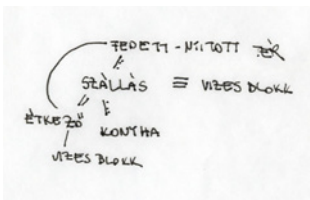 FEDETT - NYITOTT TÉR
SZÁLLÁS ≡ VIZES BLOKK
ÉTKEZŐ
KONYHA
VIZES BLOKK